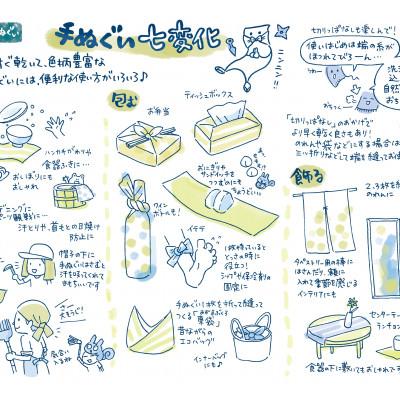 ぬぐい
手ぬぐい七変化
すぐ乾いて、色柄豊富な
ぐいには、便利な使い方がいろいろ♪
ハンカチがわりや
食器ふきに…
おしぼりにも
おしゃれ
ーデニングに
ポーツ観戦に…
汗とりや、首もとの日焼け
防止に
帽子の下に
手ぬぐいはさむと
汗を吸ってくれて
きもちいいです
包む
お弁当
ティッシュボックス
おにぎりや
サンドイッチを
つつむのに
ちょうどいい
ワイン
ボトルも!
イテテ
1枚持っていると
とっさの時に
役立つ!
シップや保冷剤の
固定に
手ぬぐい1枚を折って縫って
つくる「あずま
袋」
昔ながらの
エコバッグ
インナーバッグ
にも♪
切りっぱなしも楽しんで!
使いはじめは端の糸が
ほつれてびろーん…
洗
自然
お
「切りっぱなし」のおかげで
より早く乾く良さもあり!
のれんや袋などにする場合は
三ッ折りなどして端も縫ってお
飾る
2、3枚を
のれんに
タペストリー用の棒に
はさんだり、額に
入れて季節を感じる
インテリアにも
センター
ランチョン
食器の下に敷いてもおしゃれです